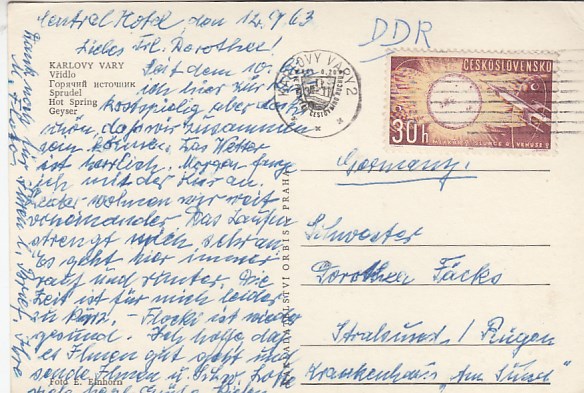 Central Hotel, den 12.9.63
Liebes Frl. Dorothea!
KARLOVY VARY
Vřídlo
Горячий источник
Sprudel
Hot Spring
Geyser
Seit dem 10.
ich hier zur
Kostspielig aber
schon, daß wir zusammen
sein können. Das Wetter
ist herrlich. Morgen fang
ich mit der Kur an.
Leider wohnen wir weit
voneinander. Das Laufen
strengt mich sehr an.
Es geht hier immer
rauf und runter. Die
Zeit ist für mich leider
zu kurz. – Flocki ist wieder
gesund. Ich hoffe, daß
es Ihnen gut geht und
sende Ihnen u. Schw. Lotte
viele
Foto E. Einhorn
Ihren l. Brief. Ihre
NAKLADATELSTVÍ ORBIS PRAHA
DDR
KARLOVY VARY 2
ČESKOSLOVENSKO
30h
Germany.
Schwester
Dorothea Täcks
Stralsund / Rügen
Krankenhaus "Am Sund"